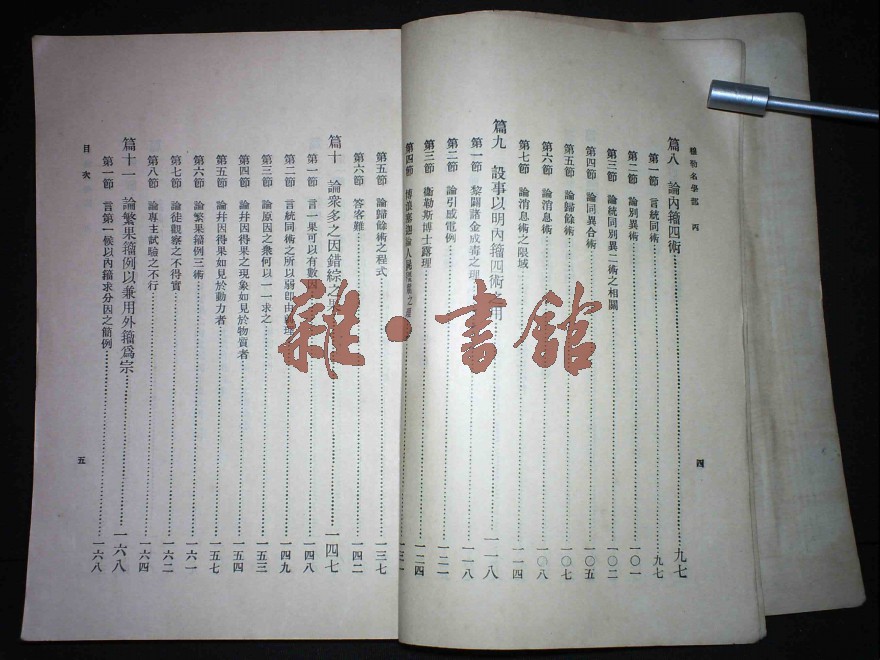 穆勒名學部 丙
篇八 論內籀四術 九七
第一節 言統同術 九七
第二節 論別異術 一〇一
第三節 論統同別異二術之相關 一〇二
第四節 論同異合術 一〇五
第五節 論歸餘術 一〇七
第六節 論消息術 一〇八
第七節 論消息術之限域 一一四
篇九 設事以明內籀四術之用 一一八
第一節 黎闢諸金成毒之理 一一八
第二節 論引感電例 一二一
第三節 衞勒斯博士露理 一二四
第四節 一三一
四
第五節 論歸餘術之程式 一三七
第六節 答客難 一四二
篇十 論衆多之因錯綜之果 一四七
第一節 言一果可以有數因 一四八
第二節 言統同術之所以弱卽由此理 一四九
第三節 論原因之衆何以一一求之 一五三
第四節 論幷因得果之現象如見於物質者 一五四
第五節 論幷因得果如見於動力者 一五七
第六節 論繁果籀例三術 一六一
第七節 論徒觀察之不得實 一六二
第八節 論專主試驗之不行 一六四
篇十一 論繁果籀例以兼用外籀爲宗 一六八
第一節 言第一候以內籀求分因之簡例 一六八
目次
五
雜·書館